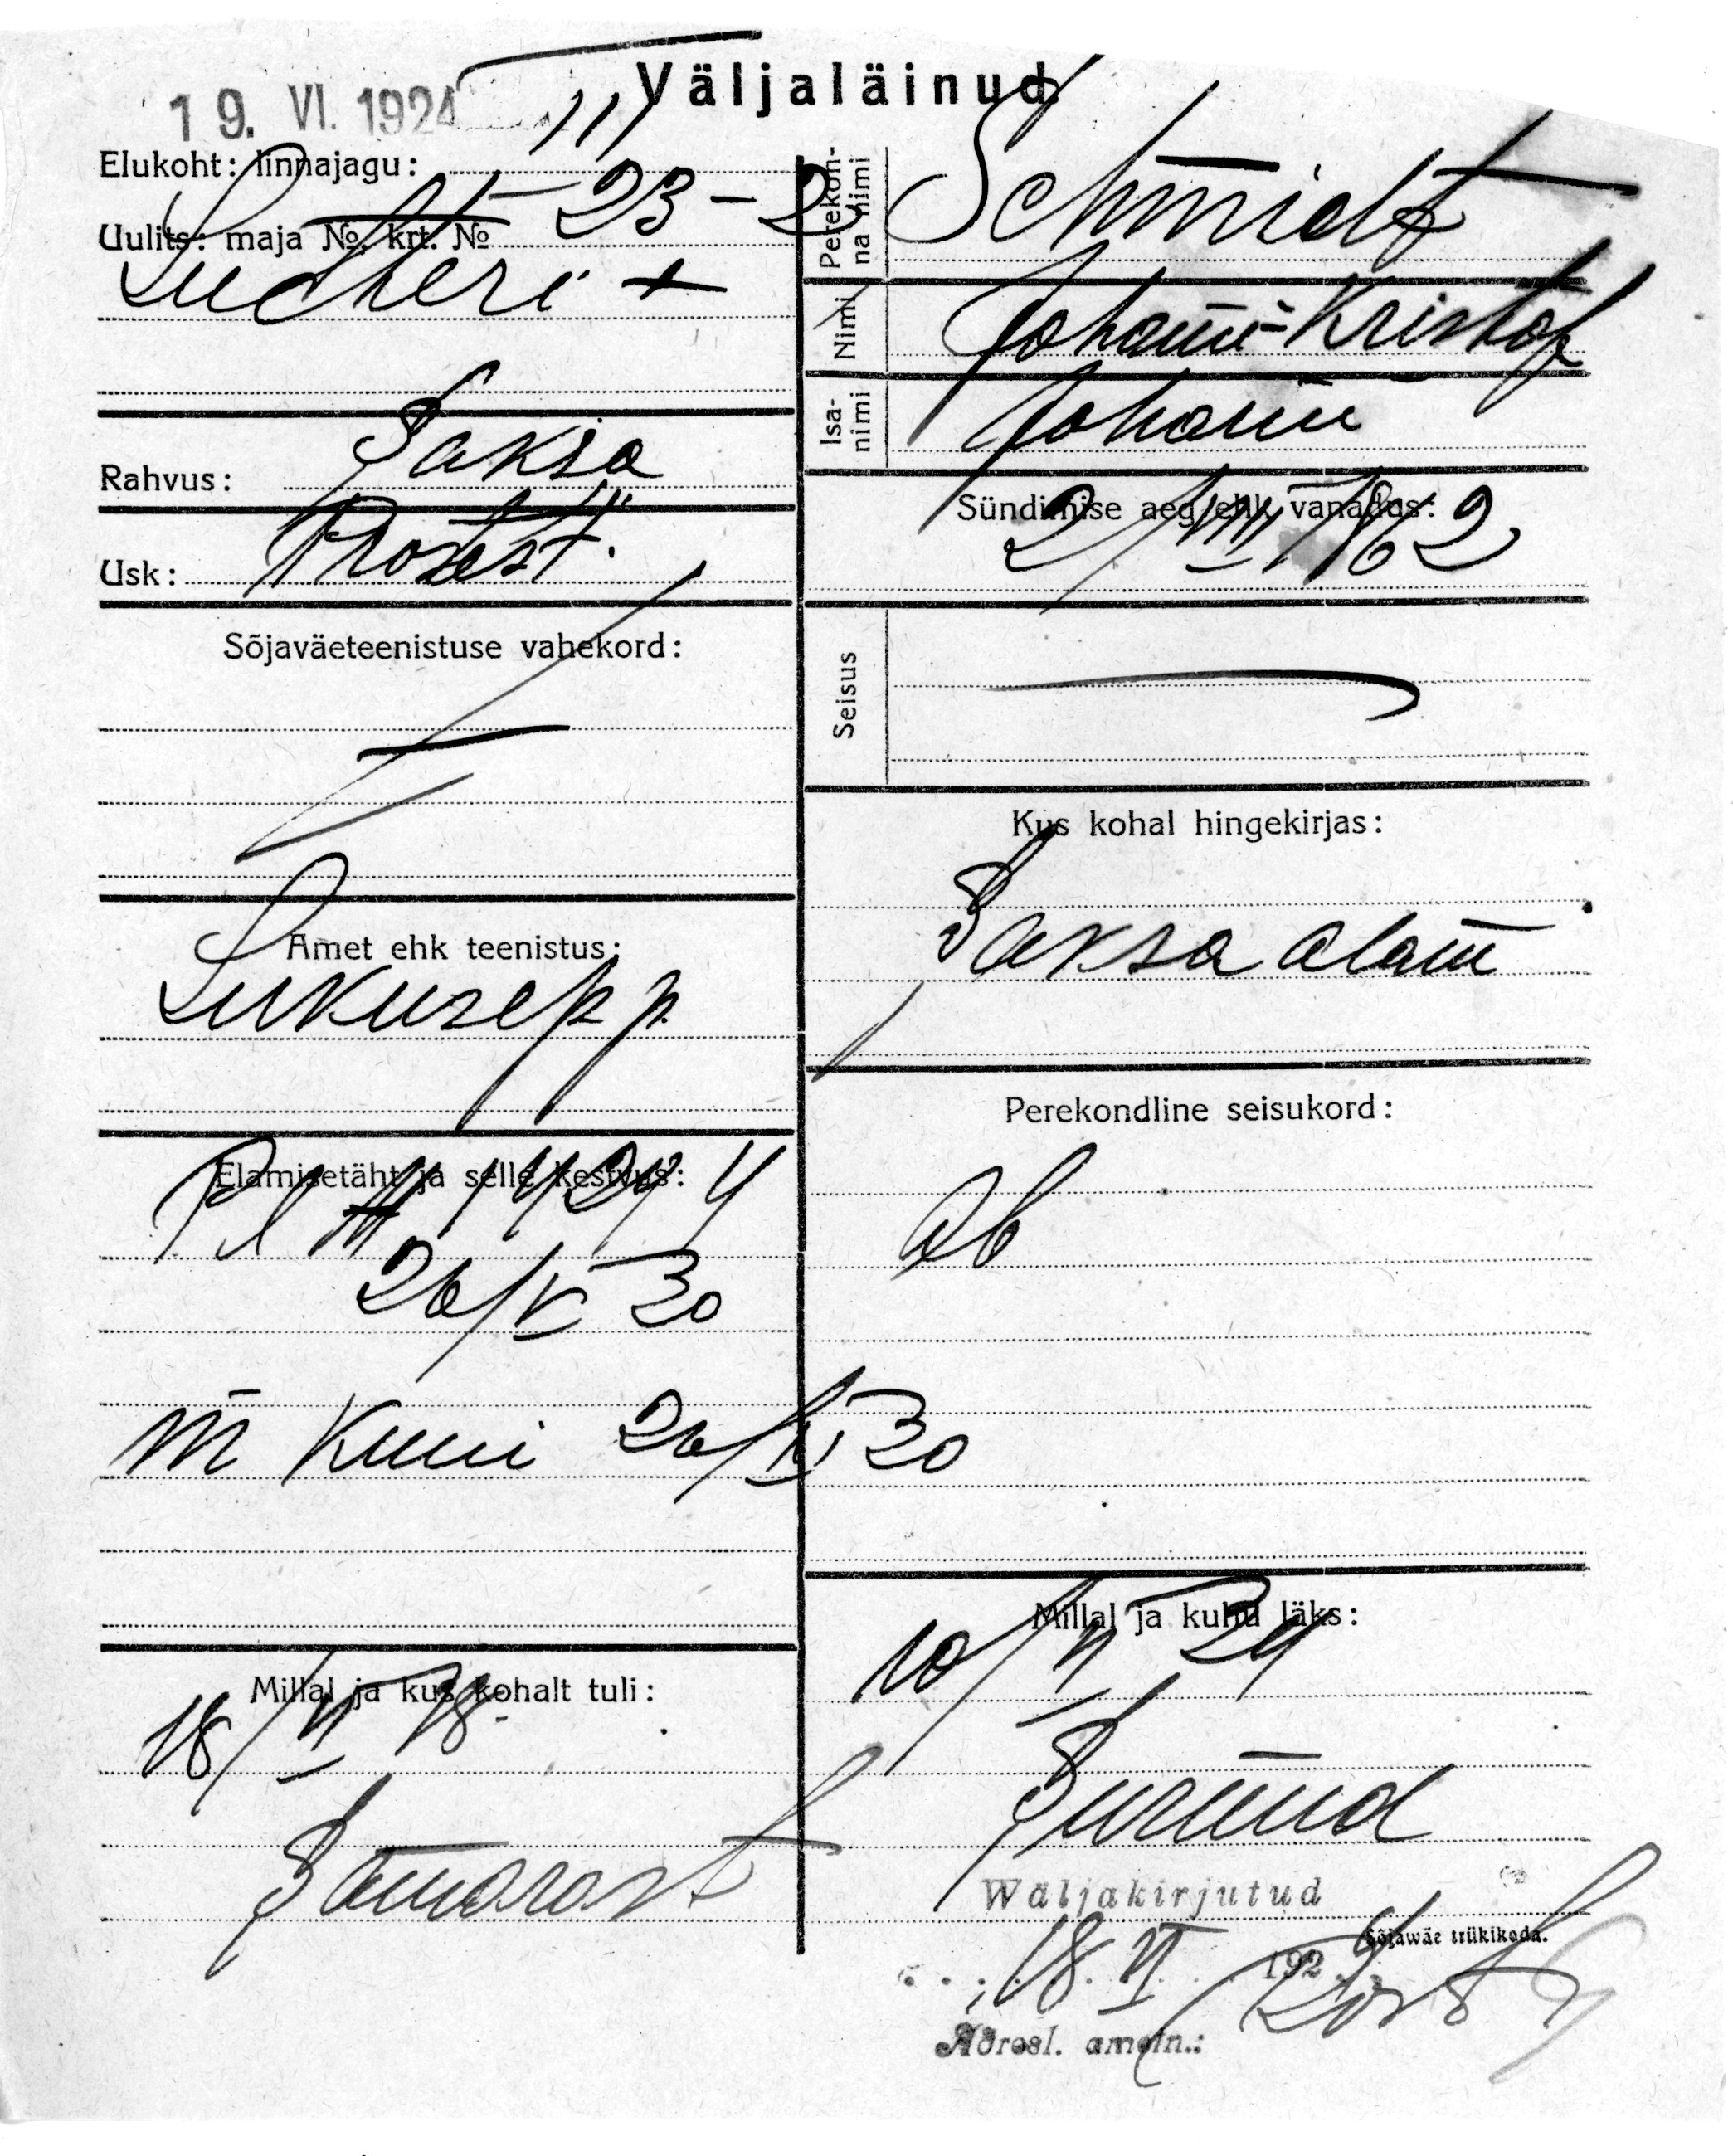 19. VI. 1924
Väljaläinud
Elukoht: linnajagu: III
Uulits: maja № krt. № 23-2
Lutheri +
Rahvus: Saksa
Usk: Protest.
Sõjaväeteenistuse vahekord:
Amet ehk teenistus:
Lukusepp
Elamisetäht ja selle kestvus:
14244
26/V 20
Kuni 26/XI 20
Millal ja kus kohalt tuli:
18/VI 18.
Samarast
Perekonna nimi Schmidt
Nimi Johann-Kristof
Isanimi Johann
Sündimise aeg ehk vanadus:
2/VIII 1862
Seisus
Kus kohal hingekirjas:
Saksa alam
Perekondline seisukord:
ab
Millal ja kuhu läks:
10/VI 24
Surnud
Wäljakirjutud
18. VI 192
Sõjawäe trükikoda.
Adresl. ametn.: